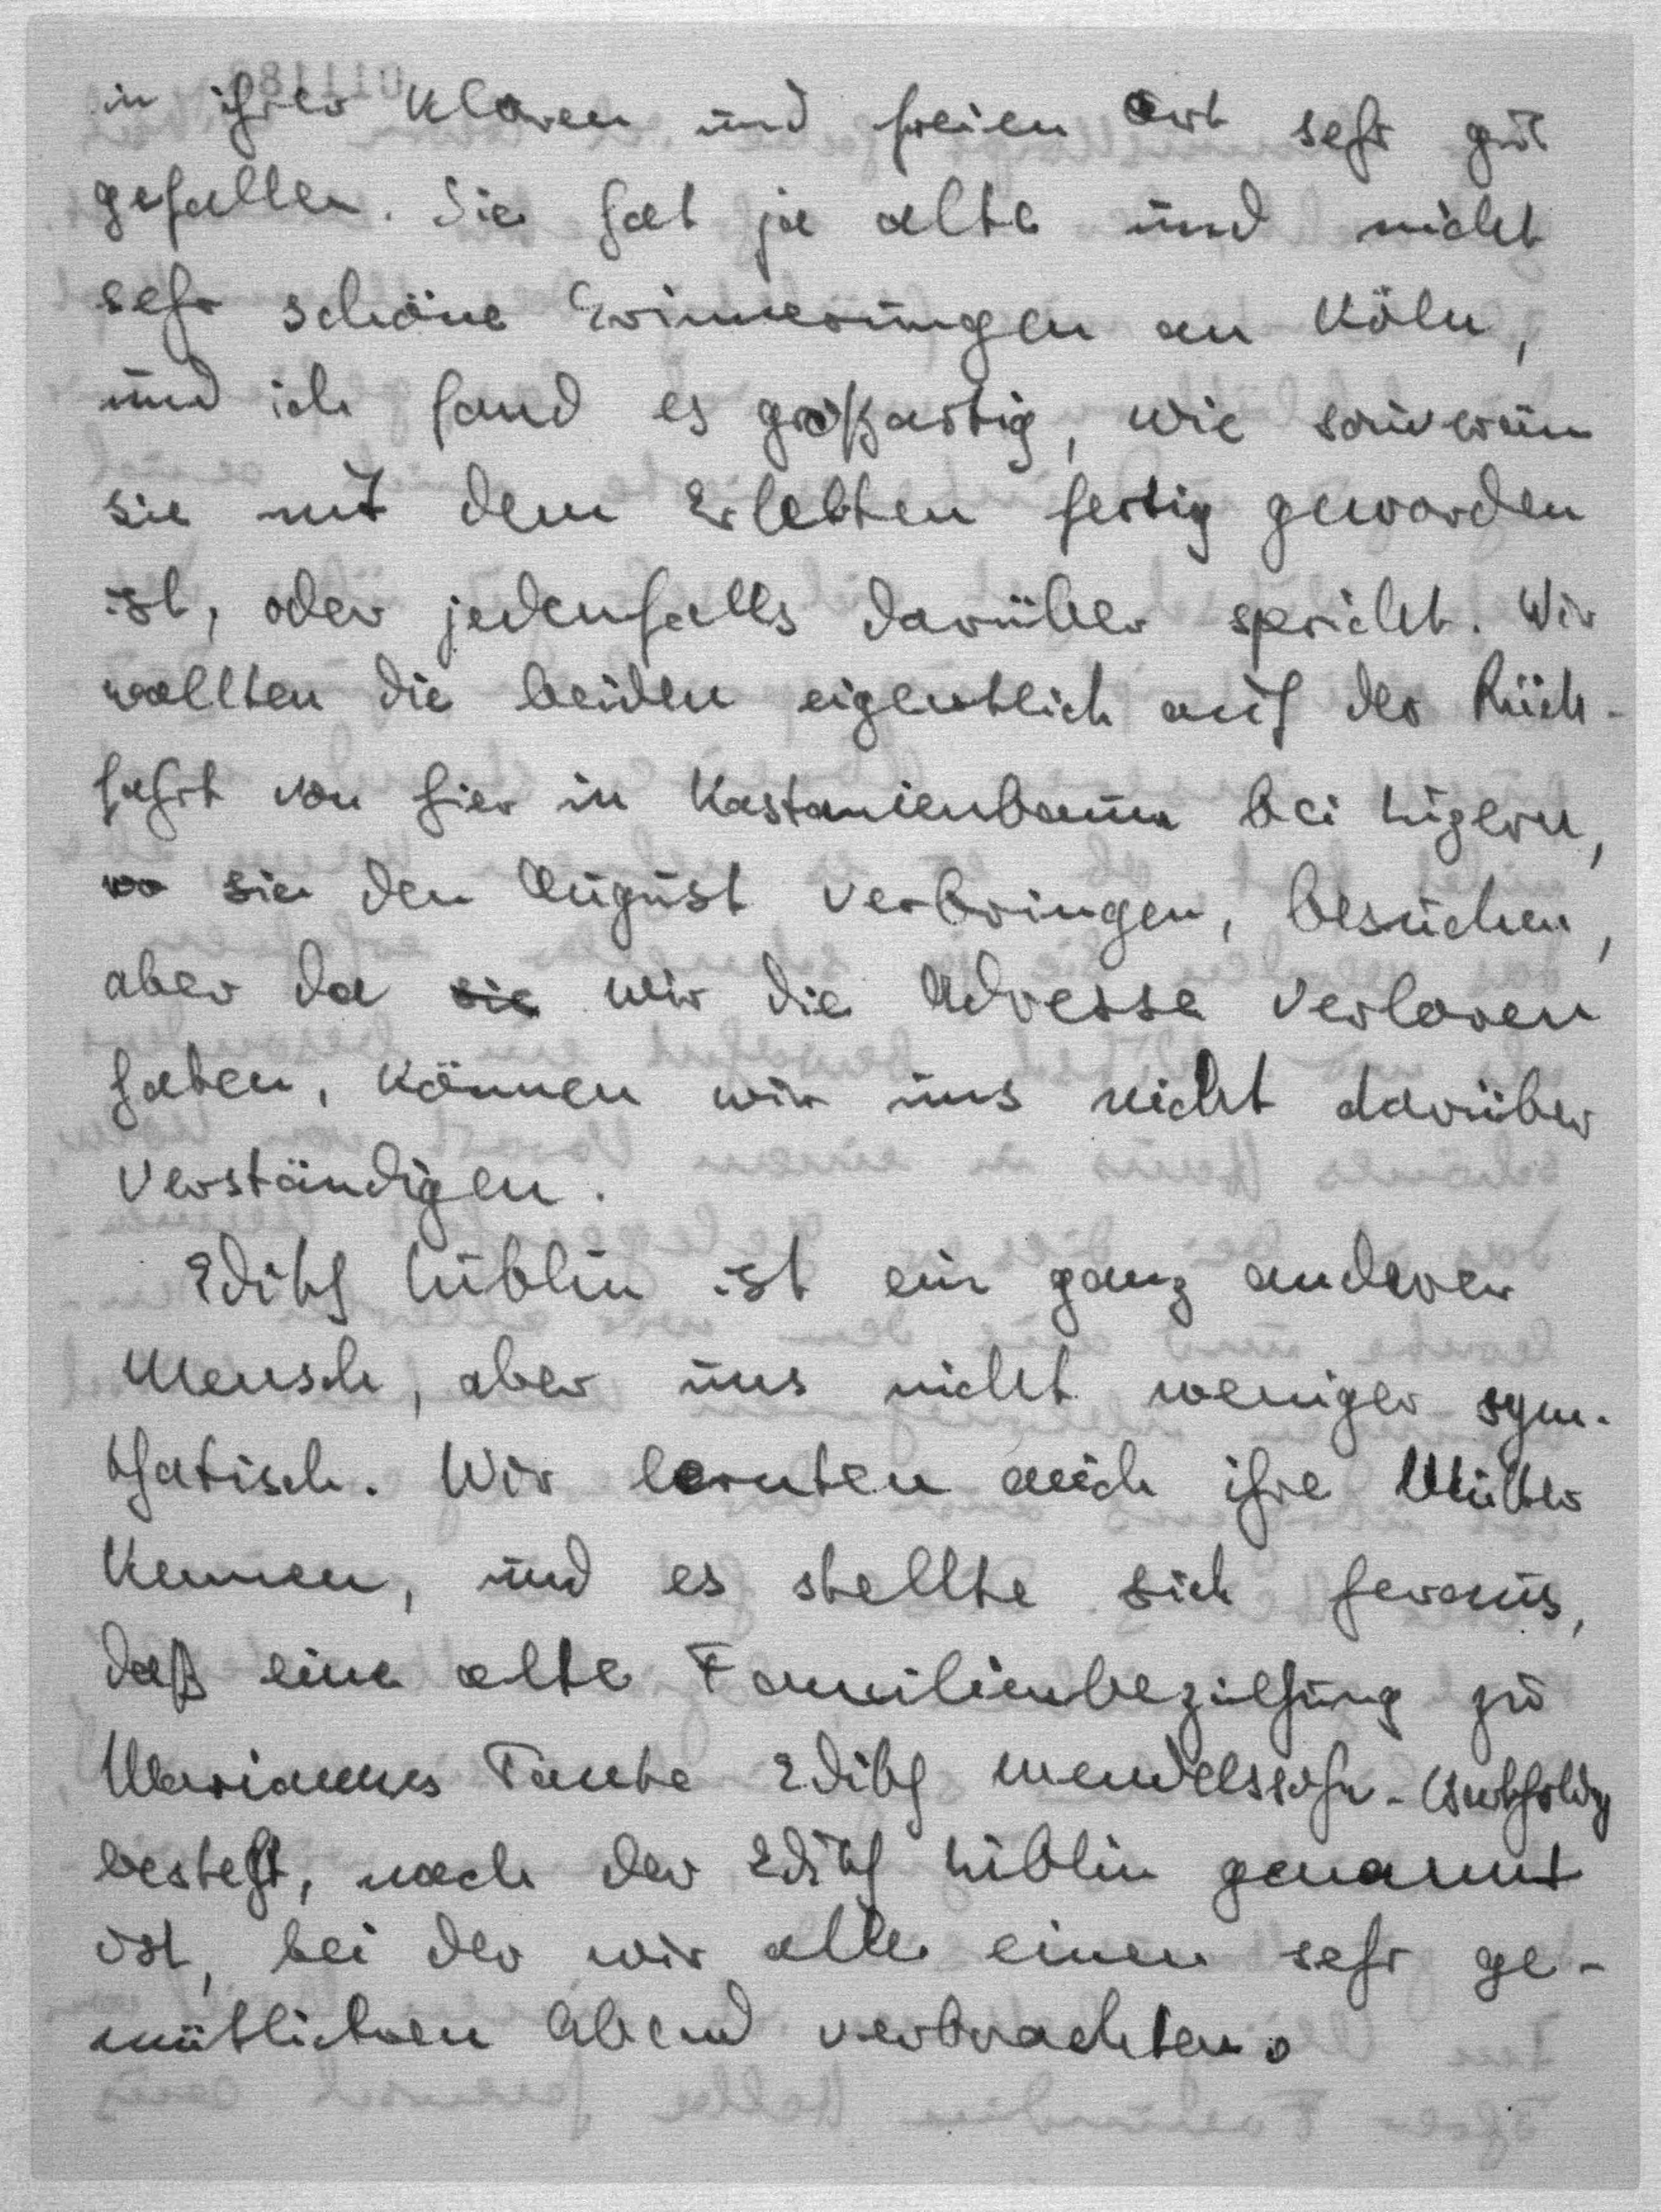 in ihrer klaren und freien Art sehr gut
gefallen. Sie hat ja alte und nicht
sehr schöne Erinnerungen an Köln,
und ich fand es großartig, wie souverän
sie mit dem Erlebten fertig geworden
ist, oder jedenfalls darüber spricht. Wir
wollten die beiden eigentlich auf der Rück-
fahrt von hier in Kastanienbaum bei Luzern,
wo sie den August verbringen, besuchen,
aber da sie wir die Adresse verloren
haben, können wir uns nicht darüber
verständigen.
Edith Lüblin ist ein ganz anderer
Mensch, aber uns nicht weniger sym-
pathisch. Wir lernten auch ihre Mutter
kennen, und es stellte sich heraus,
daß eine alte Familienbeziehung zu
Mariannes Tante Edith Mendelssohn-Bartholdy
besteht, nach der Edith Lüblin genannt
ist, bei der wir alle einen sehr ge-
mütlichen Abend verbrachten.